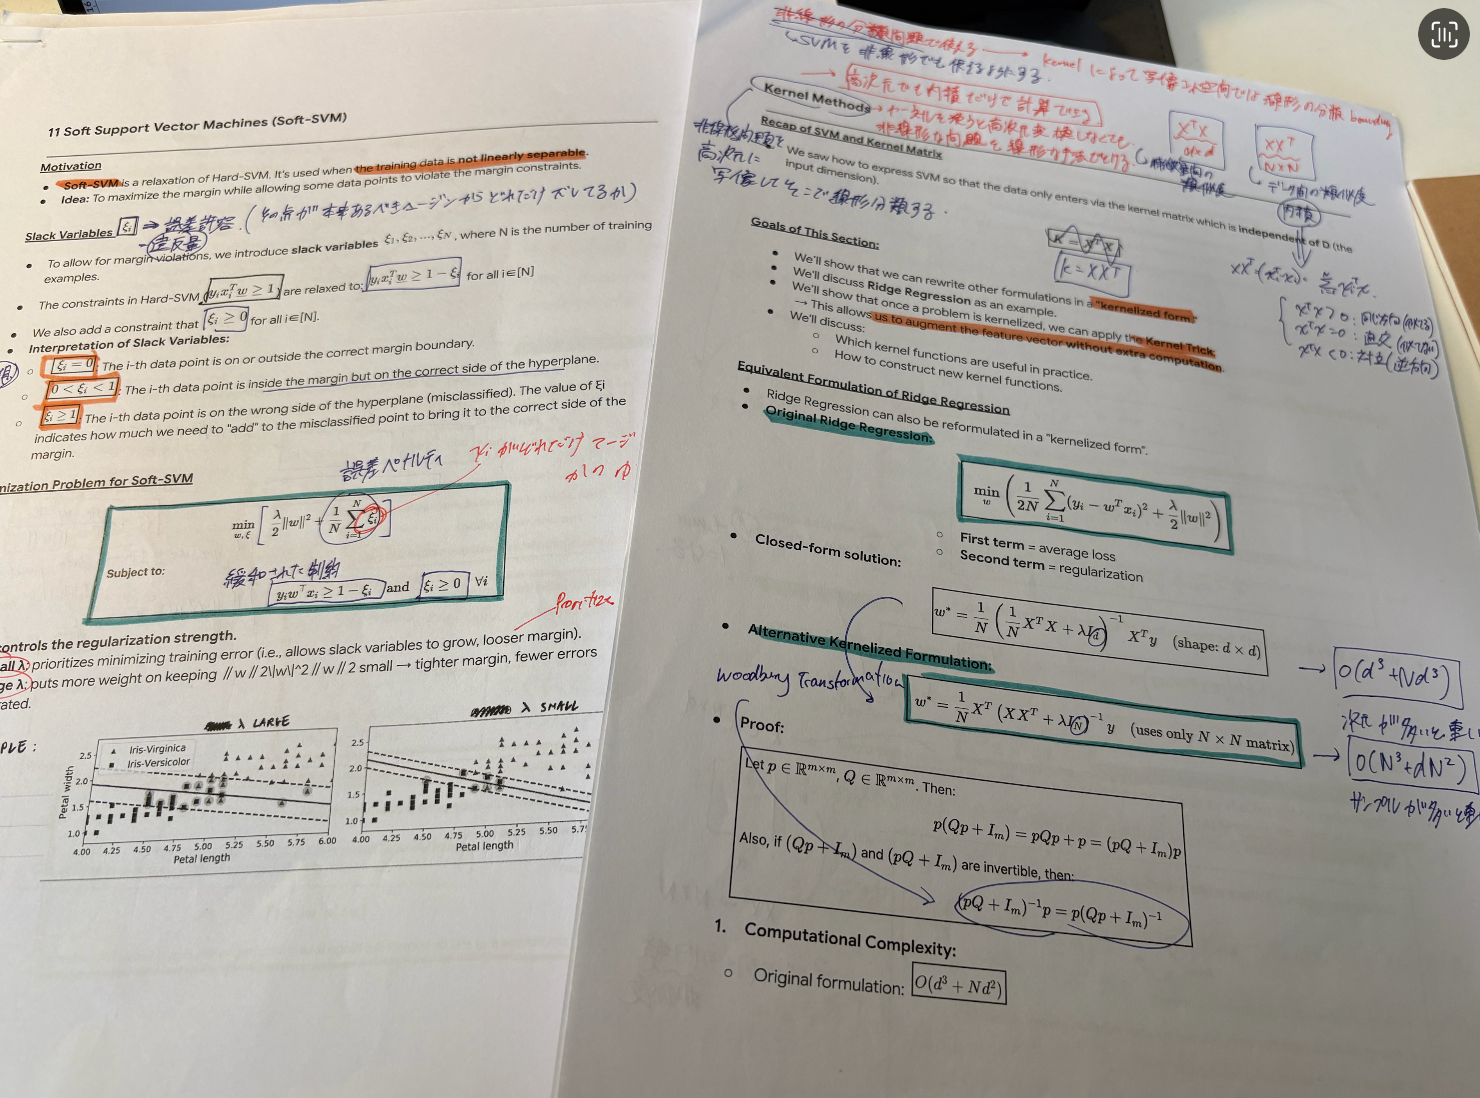 11 Soft Support Vector Machines (Soft-SVM)
Motivation
Soft-SVM is a relaxation of Hard-SVM. It's used when the training data is not linearly separable.
Idea: To maximize the margin while allowing some data points to violate the margin constraints.
Slack Variables ξi ⇒ 誤差許容.
違反量
To allow for margin violations, we introduce slack variables ξ1, ξ2, ..., ξN, where N is the number of training
examples.
The constraints in Hard-SVM yi xi^T w ≥ 1 are relaxed to: yi xi^T w ≥ 1 − ξi for all i∈[N]
We also add a constraint that ξi ≥ 0 for all i∈[N].
Interpretation of Slack Variables:
ξi = 0: The i-th data point is on or outside the correct margin boundary.
0 < ξi < 1: The i-th data point is inside the margin but on the correct side of the hyperplane.
ξi ≥ 1: The i-th data point is on the wrong side of the hyperplane (misclassified). The value of ξi
indicates how much we need to "add" to the misclassified point to bring it to the correct side of the
margin.
誤差ペナルティ
mization Problem for Soft-SVM
min w,ξ [ λ/2 ||w||² + 1/N Σ i=1 N ξi ]
Subject to:
緩和された制約
yi w^⊤ xi ≥ 1 − ξi and ξi ≥ 0 ∀i
Prioritize
ontrols the regularization strength.
all λ: prioritizes minimizing training error (i.e., allows slack variables to grow, looser margin).
ge λ: puts more weight on keeping // w // 2\|w\|^2 // w // 2 small → tighter margin, fewer errors
rated.
PLE :
λ LARGE
λ SMALL
Iris-Virginica
Iris-Versicolor
Petal width
2.5
2.0
1.5
1.0
4.00 4.25 4.50 4.75 5.00 5.25 5.50 5.75 6.00
Petal length
2.5
2.0
1.5
1.0
4.00 4.25 4.50 4.75 5.00 5.25 5.50 5.75
Petal length
非線形の分類問題で使える → kernelによって写像した空間では線形の分類 bounding
SVMを非線形でも使えるようにする.
→ 高次元でも内積だけで計算できる
Kernel Methods
→ カーネルを使うと高次元変換しなくても
非線形な問題を線形な手法でとける
非線形問題を
高次元に
写像してそこで線形分類する.
X^T X
d×d
XX^T
N×N
内積
Recap of SVM and Kernel Matrix
We saw how to express SVM so that the data only enters via the kernel matrix which is independent of D (the
input dimension).
K = X^T X
K = XX^T
x^T x > 0 : 同じ方向
x^T x = 0 : 直交
x^T x < 0 : 対立 (逆方向)
Goals of This Section:
We'll show that we can rewrite other formulations in a "kernelized form."
We'll discuss Ridge Regression as an example.
We'll show that once a problem is kernelized, we can apply the Kernel Trick
→ This allows us to augment the feature vector without extra computation.
We'll discuss:
Which kernel functions are useful in practice.
How to construct new kernel functions.
Equivalent Formulation of Ridge Regression
Ridge Regression can also be reformulated in a "kernelized form".
Original Ridge Regression:
min w ( 1/2N Σ i=1 N (yi − w^T xi)² + λ/2 ||w||² )
First term = average loss
Second term = regularization
Closed-form solution:
w* = 1/N ( 1/N X^T X + λId )^−1 X^T y (shape: d × d)
→ O(d³+Nd³)
Alternative Kernelized Formulation:
Woodbury Transformation
w* = 1/N X^T (XX^T + λIN)^−1 y (uses only N × N matrix)
→ O(N³+dN²)
Proof:
Let p ∈ ℝ^m×m, Q ∈ ℝ^m×m. Then:
p(Qp + Im) = pQp + p = (pQ + Im)p
Also, if (Qp + Im) and (pQ + Im) are invertible, then:
(pQ + Im)^−1 p = p(Qp + Im)^−1
1. Computational Complexity:
Original formulation: O(d³ + Nd²)